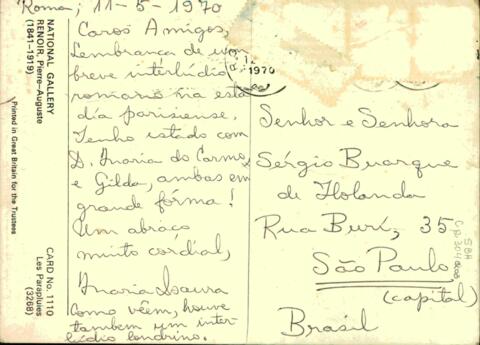 Roma, 11-5-1970
Caros Amigos,
Lembrança de um
breve interlúdio
romano na esta
dia parisiense.
Tenho estado com
D. Maria do Carmo
e Gilda, ambas em
grande fórma!
Um abraço
muito cordial,
Maria Isaura
Como vêem, houve
tambem um inter-
lúdio londrino.
1970
Senhor e Senhora
Sérgio Buarque
de Holanda
Rua Buri, 35
São Paulo
(capital)
Brasil
SBH
NATIONAL GALLERY
RENOIR, Pierre-Auguste
(1841-1919)
Printed in Great Britain for the Trustees
CARD No. 1110
Les Parapluies
(3268)